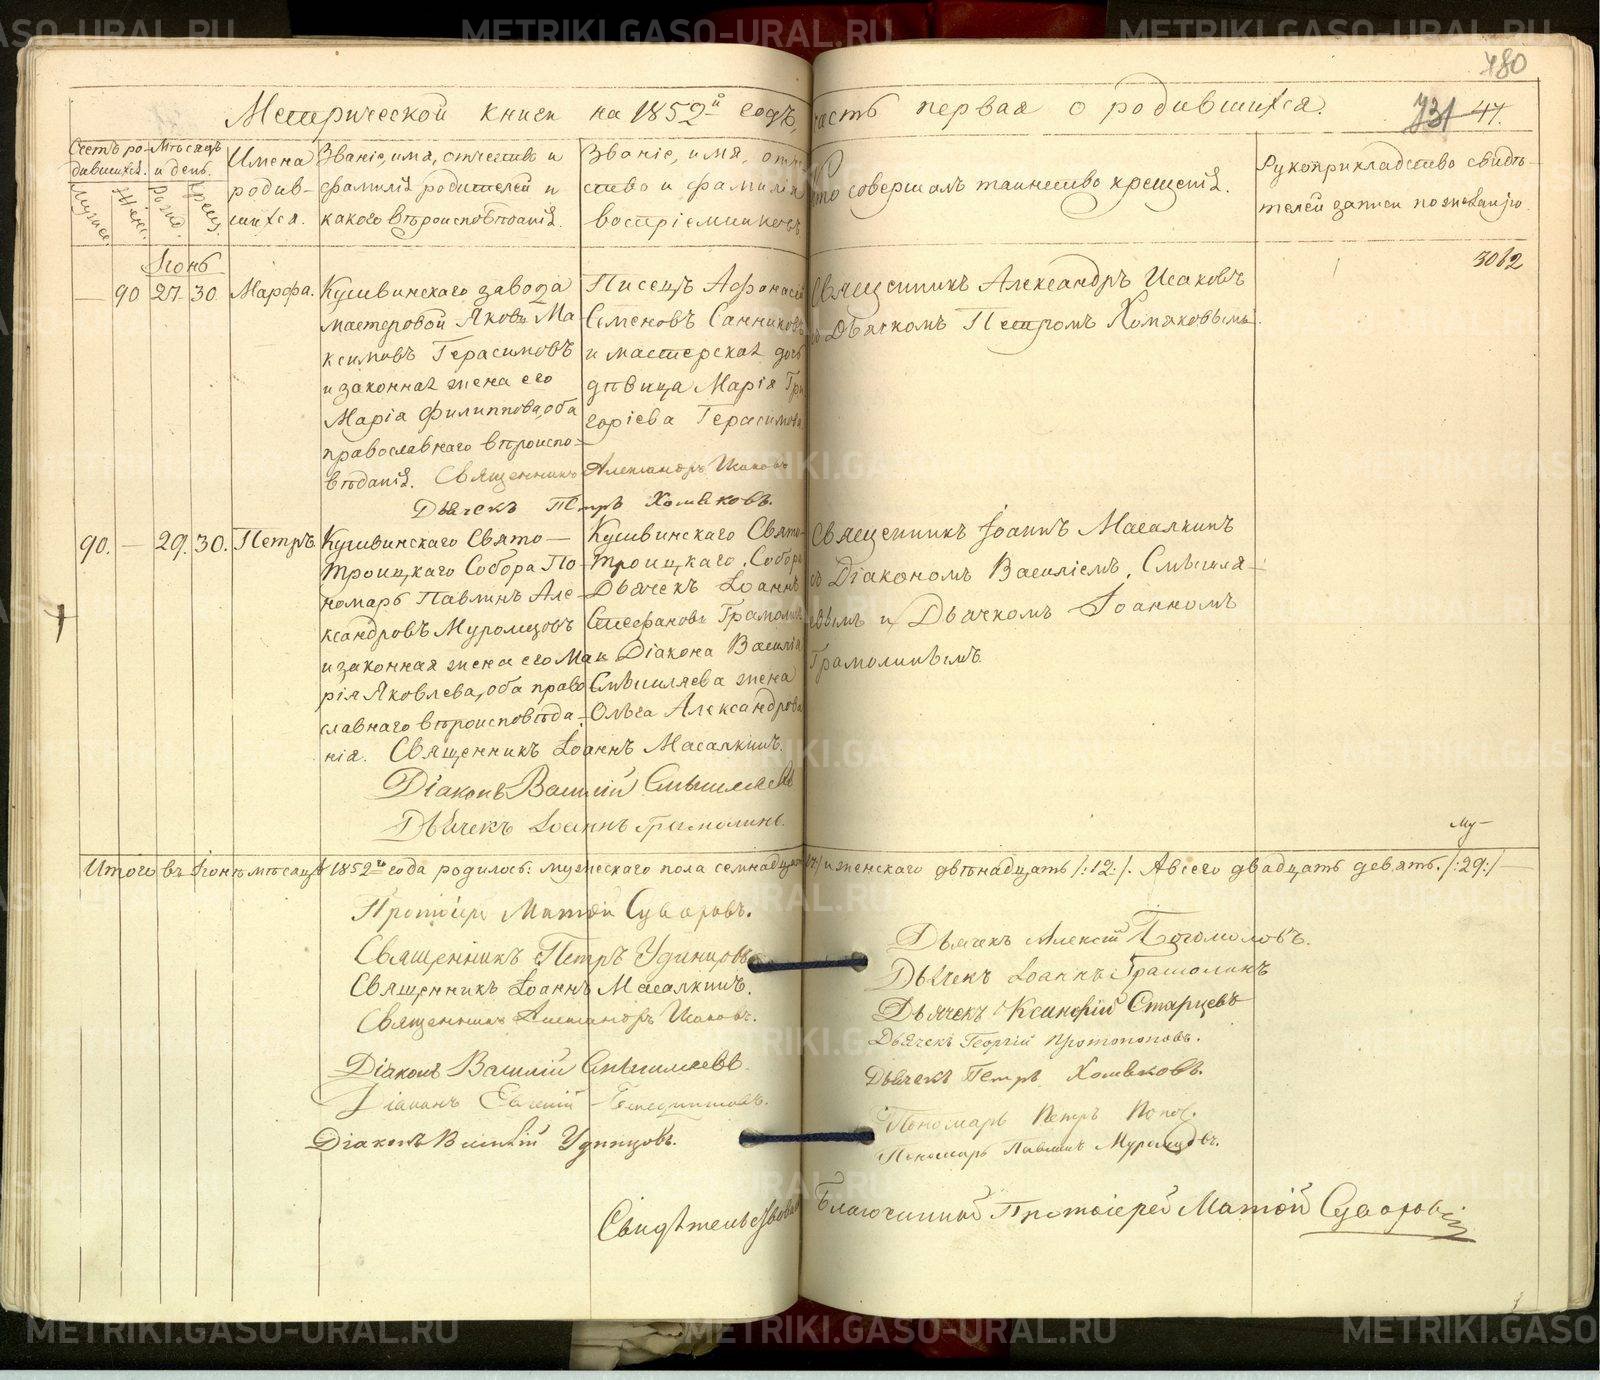 METRIKI.GASO-URAL.RU
480
Метрической книги на 1852й годъ, часть первая о родившихся.
731 47.
Счетъ ро-
дившихся.
Мѣсяцъ
и день.
Муж.
Женс.
Рожд.
Крещ.
Имена
родив-
шихся.
Званіе, имя, отчество и
фамилія родителей и
какого вѣроисповѣданія.
Званіе, имя, отче-
ство и фамилія
воспріемниковъ
Кто совершалъ таинство крещенія.
Рукоприкладство свидѣ-
телей записи по желанію
3062
Іюнь
— 90 27 30 Марфа.
Кушвинскаго завода
мастеровой Яковъ Ма-
ксимовъ Герасимовъ
и законная жена его
Марія Филиппова, оба
православнаго вѣроиспо-
вѣданія.
Писецъ Афонасій
Семеновъ Санниковъ
и мастерская дочь
дѣвица Марія Гри
горіева Герасимова
Священникъ Александръ Исаковъ
съ Дьячкомъ Петромъ Хомяковымъ.
Священникъ Александръ Исаковъ
Дьячекъ Петръ Хомяковъ.
90. — 29. 30. Петръ
Кушвинскаго Свято—
Троицкаго Собора По-
номарь Павлинъ Але-
ксандровъ Муромцовъ
и законная жена его Ма
рія Яковлева, оба право
славнаго вѣроисповѣда-
нія.
Кушвинскаго Свято-
Троицкаго Собора
Дьячекъ Іоаннъ
Стефановъ Грамолинъ
и Діакона Василія
Смышляева жена
Ольга Александрова
Священникъ Іоаннъ Масалкинъ
съ Діакономъ Василіемъ Смышля—
евымъ и Дьячкомъ Іоанномъ
Грамолинымъ
Священникъ Іоаннъ Масалкинъ.
Діаконъ Василій Смышляевъ
Дьячекъ Іоаннъ Грамолинъ.
Му—
Итого въ Іюнѣ мѣсяцѣ 1852го года родилось: мужескаго пола семнадцать /17/ и женскаго двѣнадцать /:12:/. А всего двадцать девять. /:29:/ —
Протоіерей Матѳій Суворовъ.
Священникъ Петръ Удинцовъ
Священникъ Іоаннъ Масалкинъ.
Священникъ Александръ Исаковъ.
Діаконъ Василій Смышляевъ.
Діаконъ Евгеній
Діаконъ Василій Удинцовъ.
Дьячекъ Алексій Богомоловъ.
Дьячекъ Іоаннъ Грамолинъ
Дьячекъ Ксанфій Старцевъ
Дьячекъ Георгій Протопоповъ.
Дьячекъ Петръ Хомяковъ.
Пономарь Петръ Поповъ.
Пономарь Павлинъ Муромцовъ.
Свидѣтельствовалъ Благочинный Протоіерей Матѳій Суворовъ